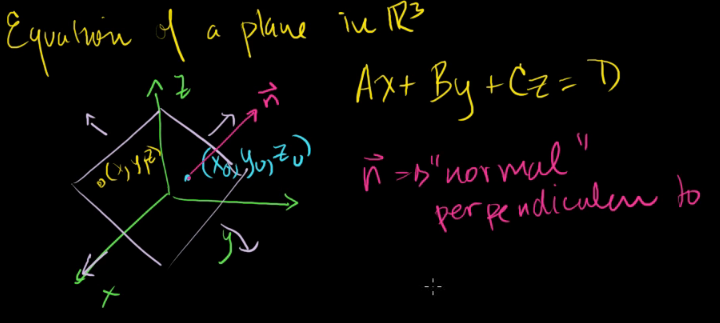 Equation of a plane in ℝ³
Ax + By + Cz = D
z
n⃗
(x, y, z)
(x₀, y₀, z₀)
n⃗ → "normal"
perpendicular to
y
x